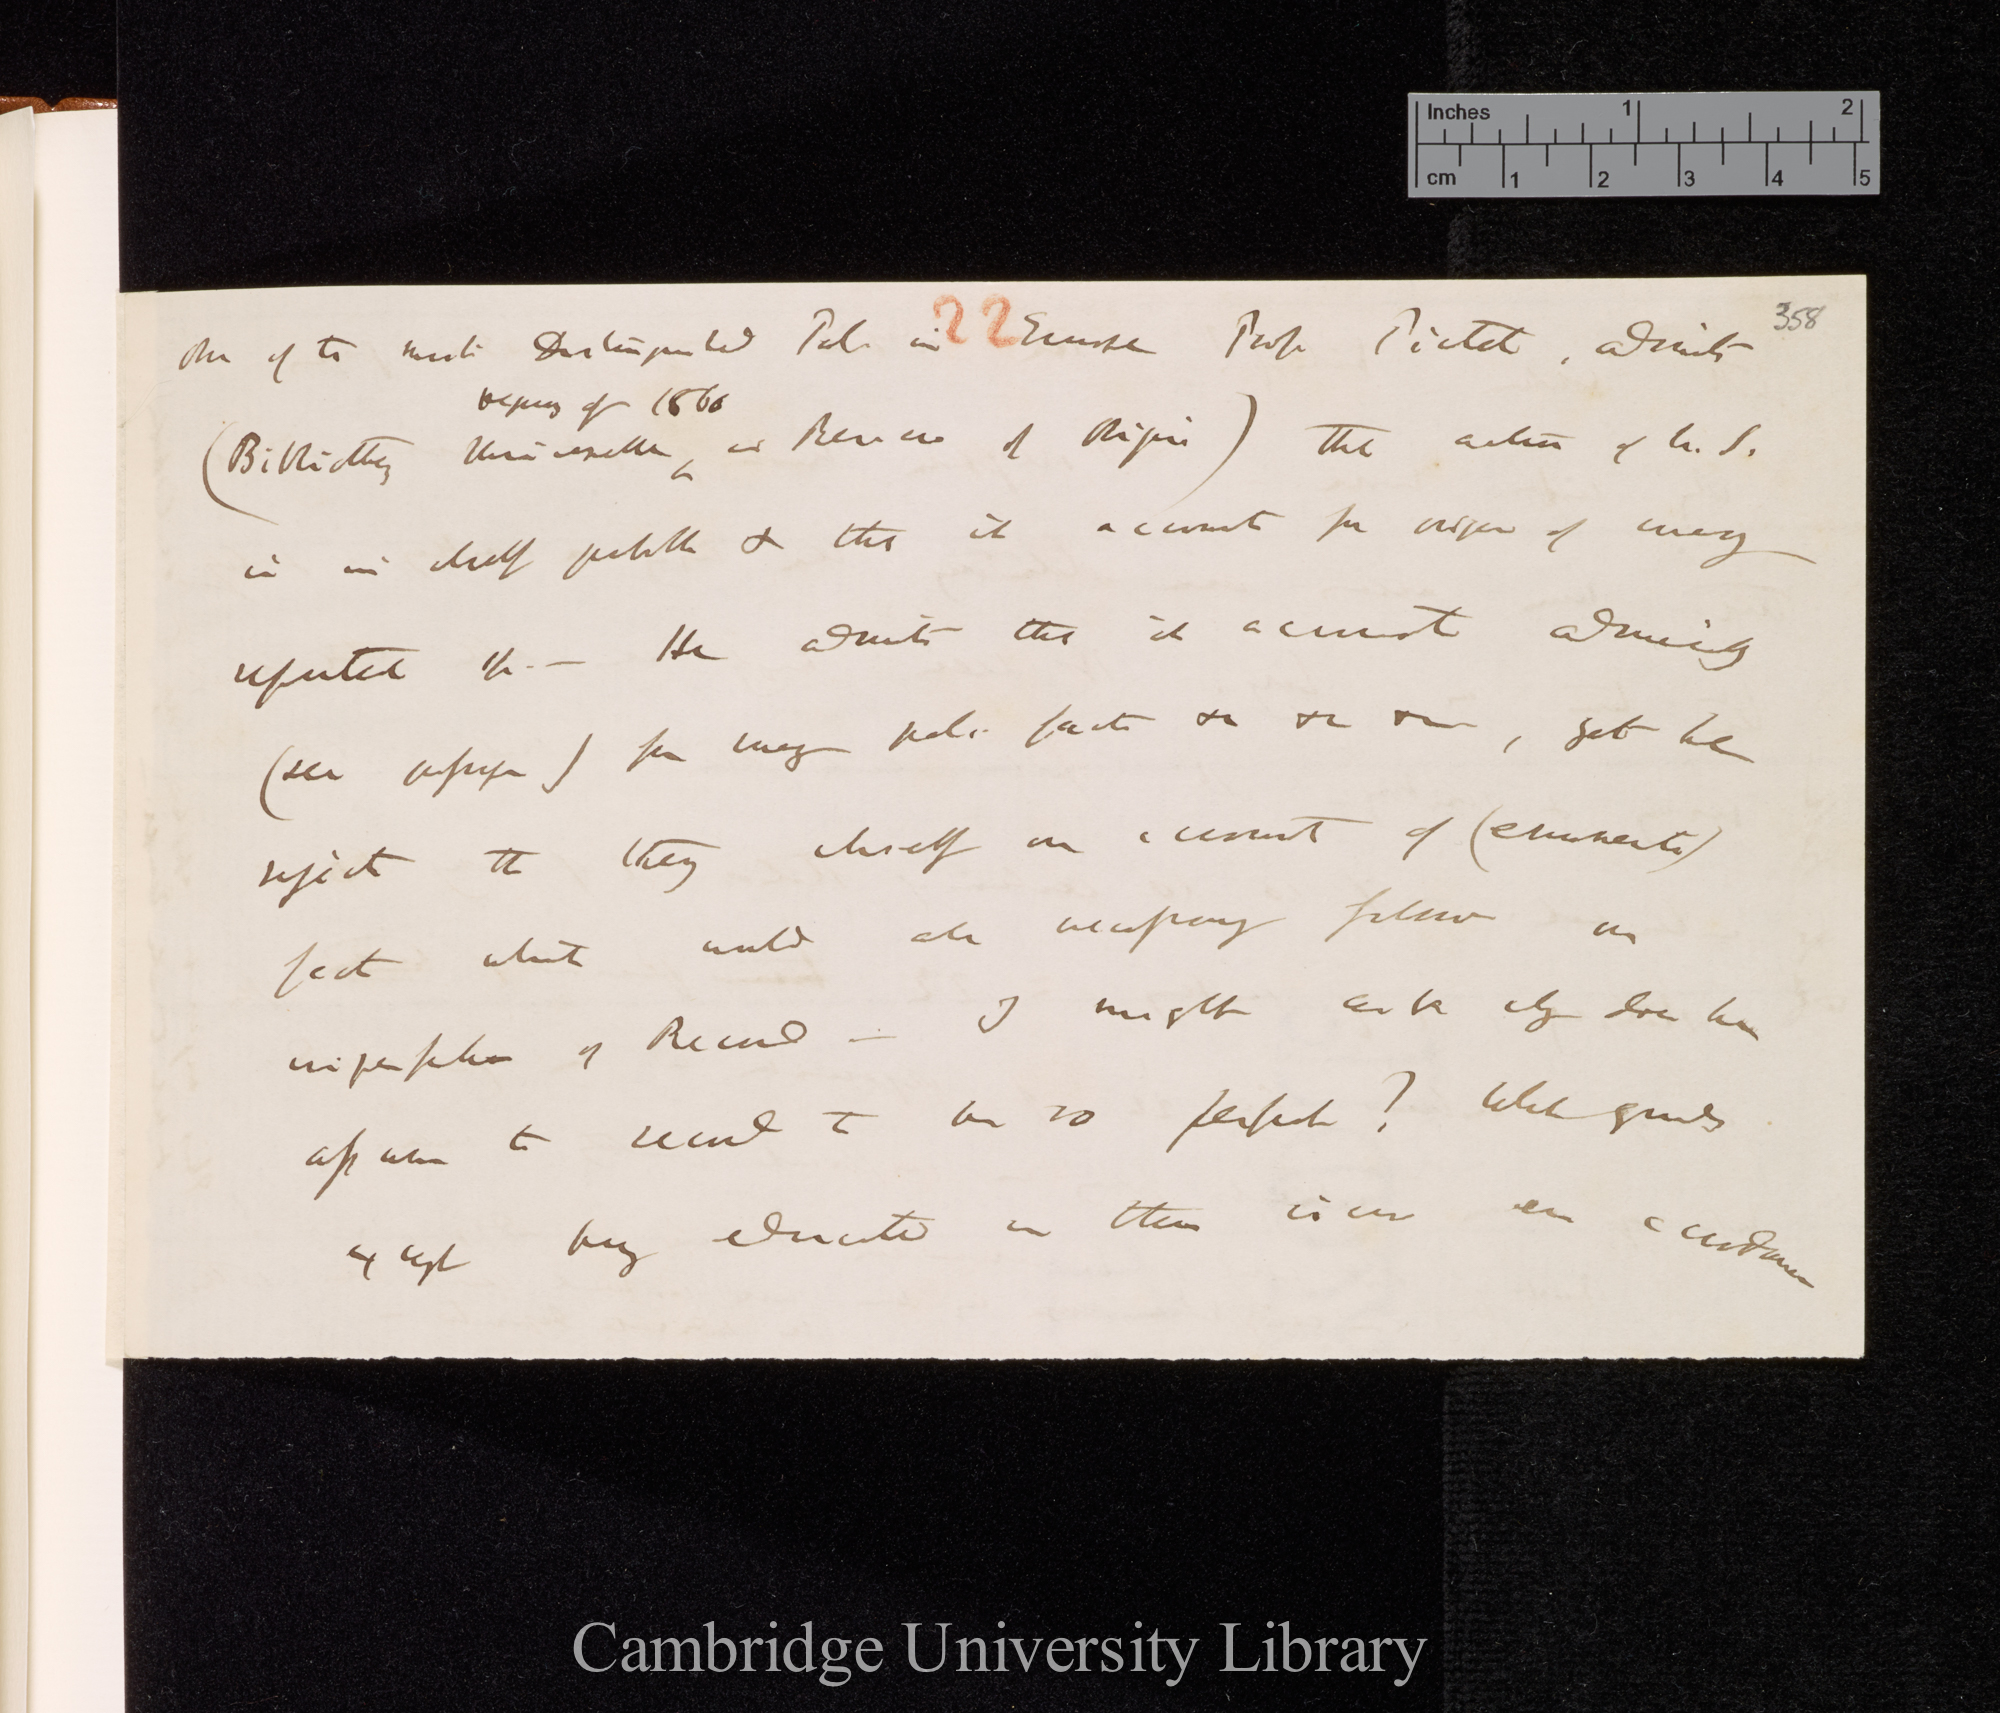 Inches 1 2
cm 1 2 3 4 5
22
358
One of the most distinguished Pal. in Europe Prof Pictet, admits
of 1860
(Biblioth Universelle, in Review of Origin) that action of N. S.
is in itself probable & that it accounts for origin of many
reputed sp.— He admits that it accounts admirably
(see passage) for many pal. facts &c &c &c, yet he
rejects the theory itself on account of (enumerate)
fact which would all necessary follow on
imperfection of Record — I might ask why does he
assume the record to be so perfect? What grounds
except being educated in this view and accustomed
Cambridge University Library